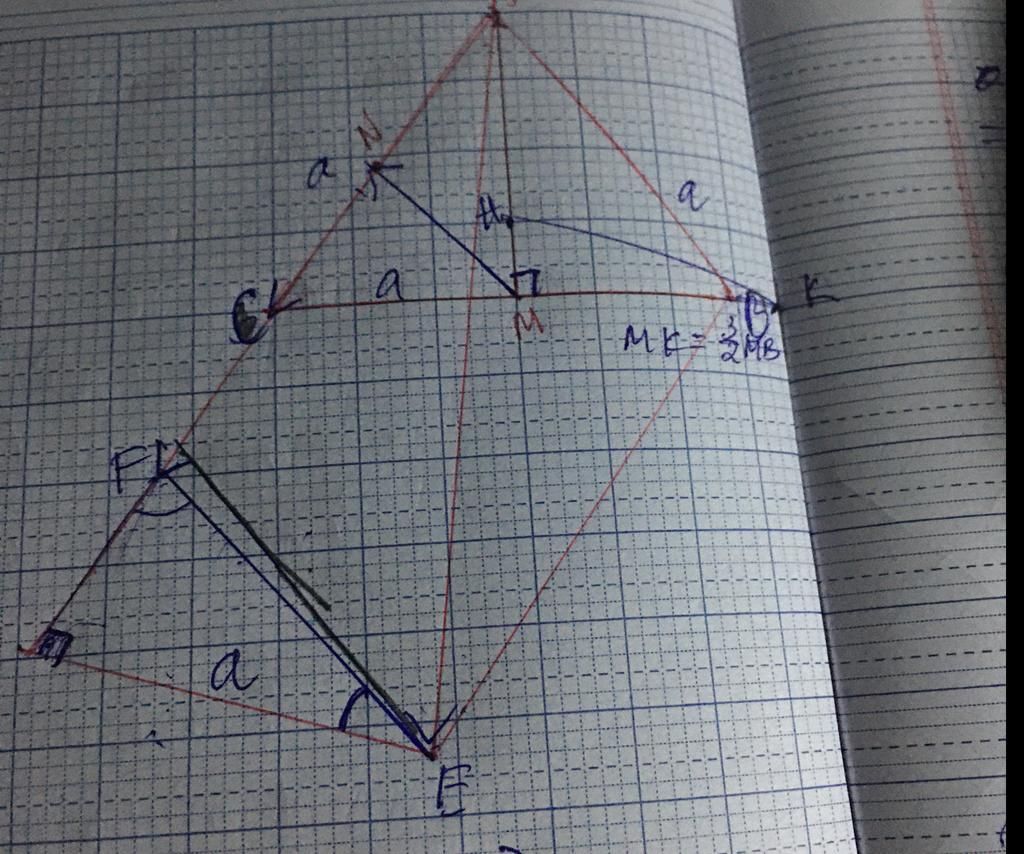 N
a
a
H
a
C
M
B
K
MK = 3/2 MB
F
a
E